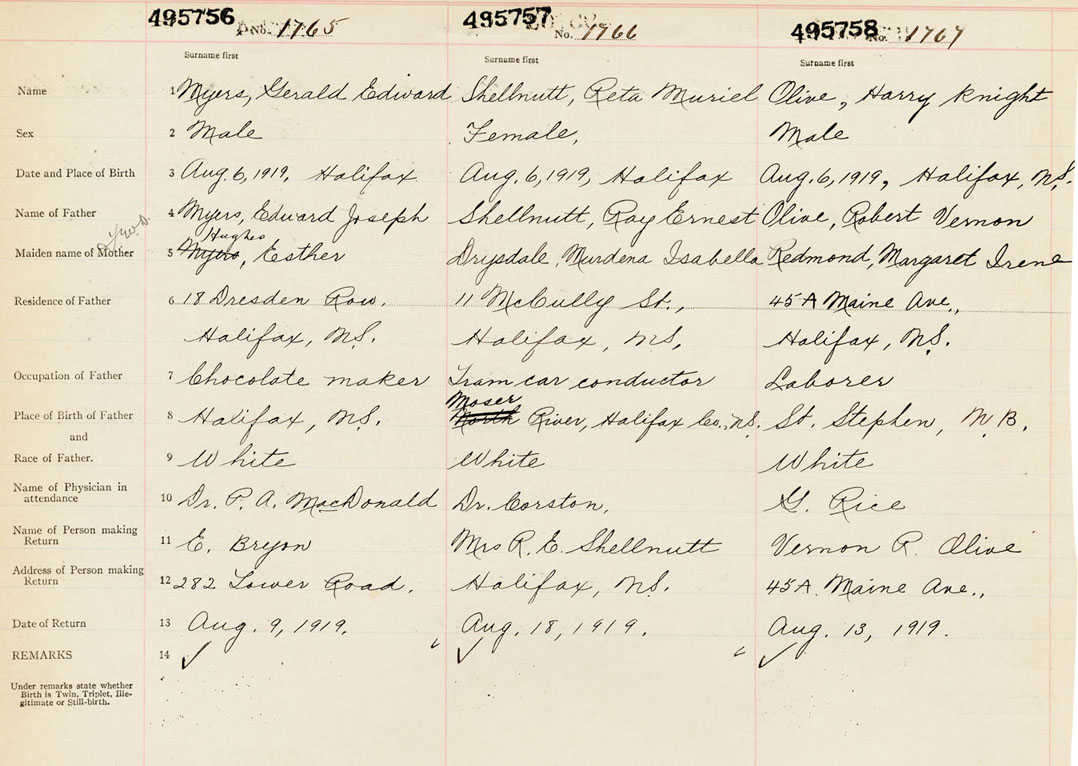 495756 No. 1765 495757 No. 1766 495758 No. 1767
Surname first Surname first Surname first
Name 1 Myers, Gerald Edward Shellnutt, Reta Muriel Olive, Harry Knight
Sex 2 Male Female, Male
Date and Place of Birth 3 Aug. 6, 1919, Halifax Aug. 6, 1919, Halifax Aug. 6, 1919, Halifax, N.S.
Name of Father 4 Myers, Edward Joseph Shellnutt, Ray Ernest Olive, Robert Vernon
Hughes
Maiden name of Mother 5 Myers, Esther Drysdale, Murdena Isabella Redmond, Margaret Irene
Residence of Father 6 18 Dresden Row. 11 McCully St., 45 A Maine Ave.,
Halifax, N.S. Halifax, N.S, Halifax, N.S.
Occupation of Father 7 Chocolate maker Tram car conductor Laborer
Moser
Place of Birth of Father 8 Halifax, N.S. North River, Halifax Co., N.S. St. Stephen, N.B.
and
Race of Father. 9 White White White
Name of Physician in
attendance 10 Dr. P. A. MacDonald Dr. Corston, G. Rice
Name of Person making
Return 11 E. Bryon Mrs R. E. Shellnutt Vernon R. Olive
Address of Person making
Return 12 282 Lower Road. Halifax, N.S. 45 A. Maine Ave.,
Date of Return 13 Aug. 9, 1919. Aug. 18, 1919. Aug. 13, 1919.
REMARKS 14 ✓ ✓ ✓
Under remarks state whether
Birth is Twin, Triplet, Ille-
gitimate or Still-birth.